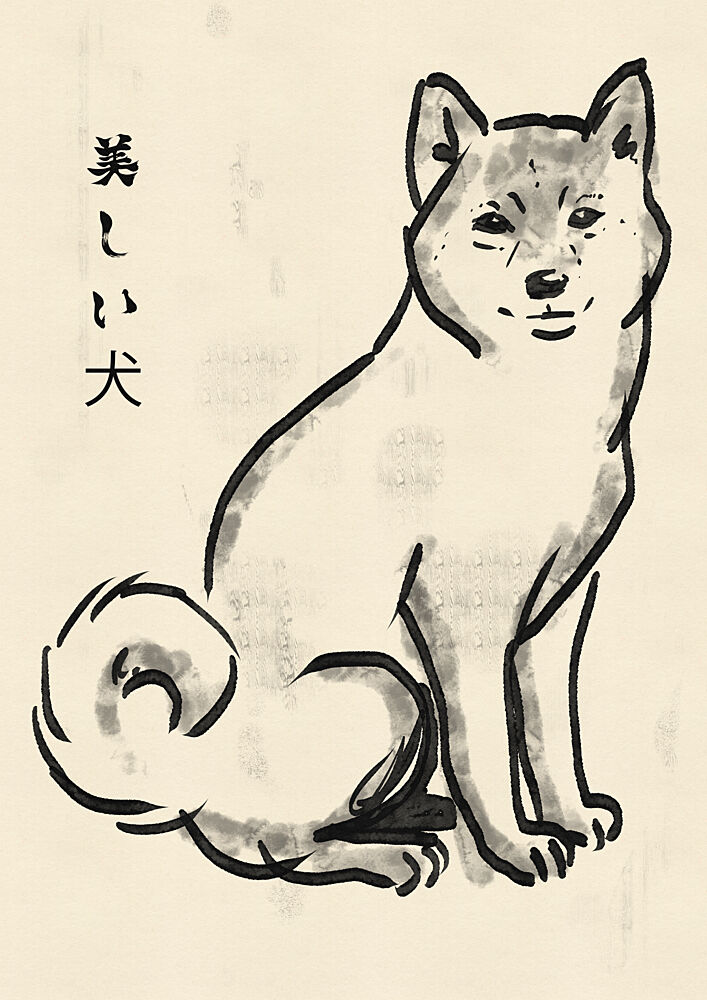 美しい犬